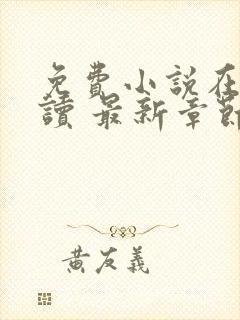 免費小說在
讀 最新章節
黃友義